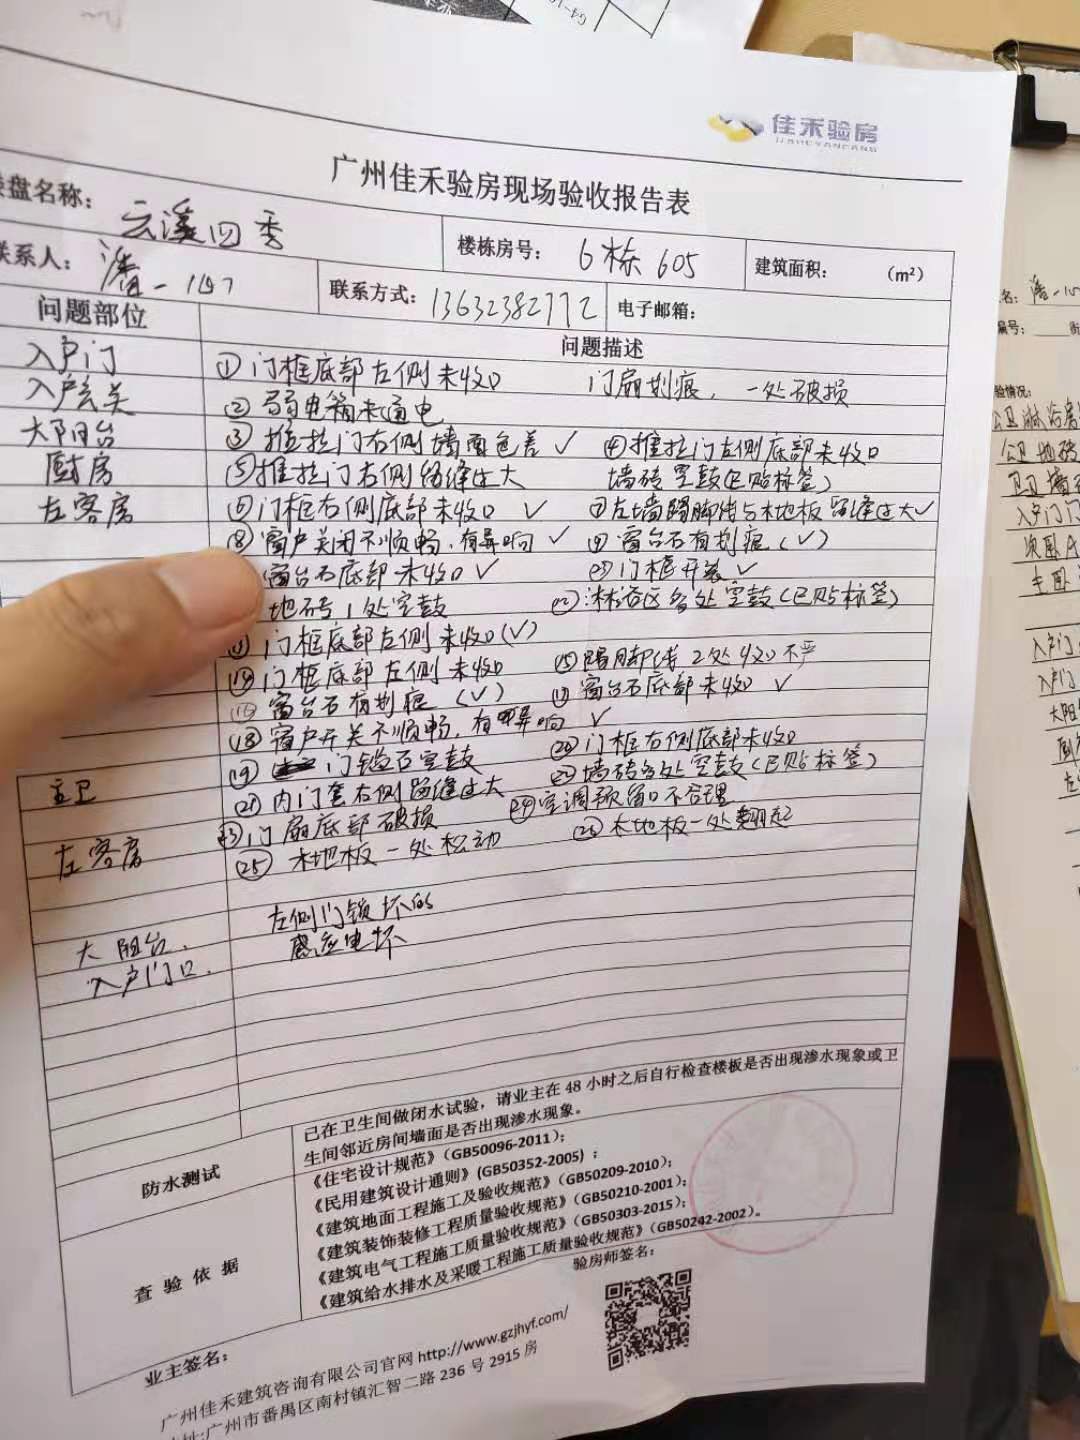 佳禾验房
JIAHEYANFANG
广州佳禾验房现场验收报告表
楼盘名称： 云溪四季 楼栋房号： 6栋605 建筑面积： （m²）
联系人： 潘 联系方式：13632382772 电子邮箱：
问题部位 问题描述
入户门 ① 门框底部左侧未收口 门扇划痕，一处破损
入户玄关 ② 弱电箱未通电
大阳台 ③ 推拉门右侧墙面色差 ✓ ④ 推拉门左侧底部未收口
厨房 ⑤ 推拉门右侧留缝过大 墙砖空鼓(已贴标签)
左客房 ⑥ 门框右侧底部未收口 ✓ ⑦ 左墙踢脚线与木地板留缝过大 ✓
⑧ 窗户关闭不顺畅，有异响 ✓ ⑨ 窗台石有划痕 (✓)
窗台石底部未收口 ✓ 门框开裂 ✓
地砖1处空鼓 ⑫ 淋浴区多处空鼓(已贴标签)
门框底部左侧未收口(✓)
⑭ 门框底部左侧未收口 ⑮ 踢脚线2处收口不严
⑯ 窗台石有划痕 (✓) ⑰ 窗台石底部未收口 ✓
⑱ 窗户开关不顺畅，有异响 ✓
⑲ 门槛石空鼓 ⑳ 门框右侧底部未收口
主卫 ㉑ 内门套右侧留缝过大 ㉒ 墙砖多处空鼓(已贴标签)
㉓ 门扇底部破损 ㉔ 空调预留口不合理
左客房 ㉕ 木地板一处松动 ㉖ 木地板一处翘起
大阳台、 左侧门锁坏的
入户门口、 感应电坏
防水测试
已在卫生间做闭水试验，请业主在 48 小时之后自行检查楼板是否出现渗水现象或卫
生间邻近房间墙面是否出现渗水现象。
查 验 依 据
《住宅设计规范》（GB50096-2011）；
《民用建筑设计通则》(GB50352-2005) ；
《建筑地面工程施工及验收规范》（GB50209-2010）；
《建筑装饰装修工程质量验收规范》（GB50210-2001）；
《建筑电气工程施工质量验收规范》（GB50303-2015）；
《建筑给水排水及采暖工程施工质量验收规范》（GB50242-2002）。
业主签名： 验房师签名：
广州佳禾建筑咨询有限公司官网 http://www.gzjhyf.com/
地址:广州市番禺区南村镇汇智二路 236 号 2915 房
公卫淋浴房
公卫地砖
入户门